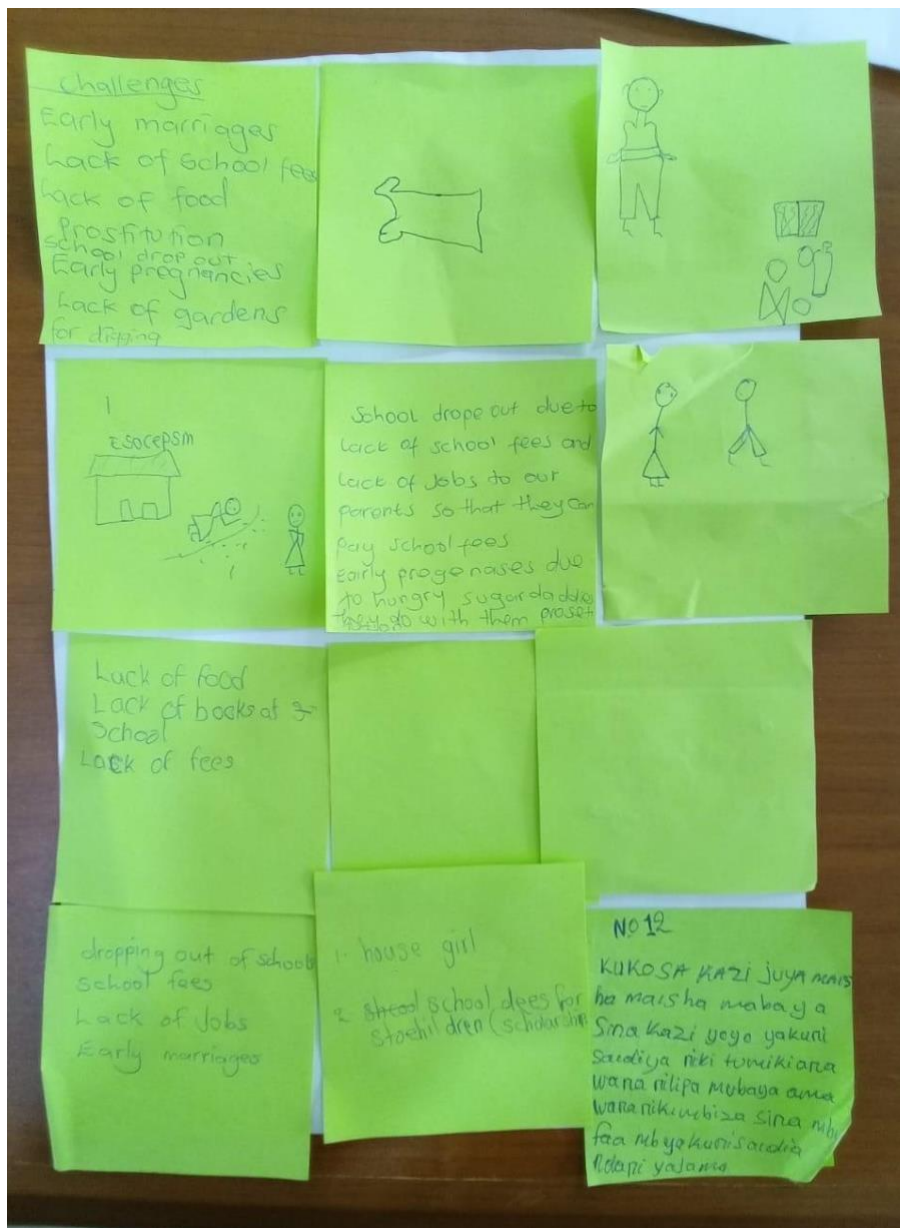 challenges
Early marriages
Lack of school fees
Lack of food
Prostitution
school drop out
Early pregnancies
Lack of gardens
for digging
1
ESOCEPSM
School drope out due to
Lack of school fees and
Lack of Jobs to our
parents so that they can
pay school fees
Early progenases due
to hungry sugardaddies
they go with them proset
Lack of food
Lack of books at
School
Lack of fees
dropping out of school
school fees
Lack of Jobs
Early marriages
1. house girl
2 school dees for
(scholarship
NO 12
KUKOSA KAZI juya MAIS
ha maisha mabaya
Sina Kazi yoyo yakuni
Saidiya niki tumikiana
wana nilipa mubaya ama
wananikimbiza sina
yakunisaidia
Ndani ya